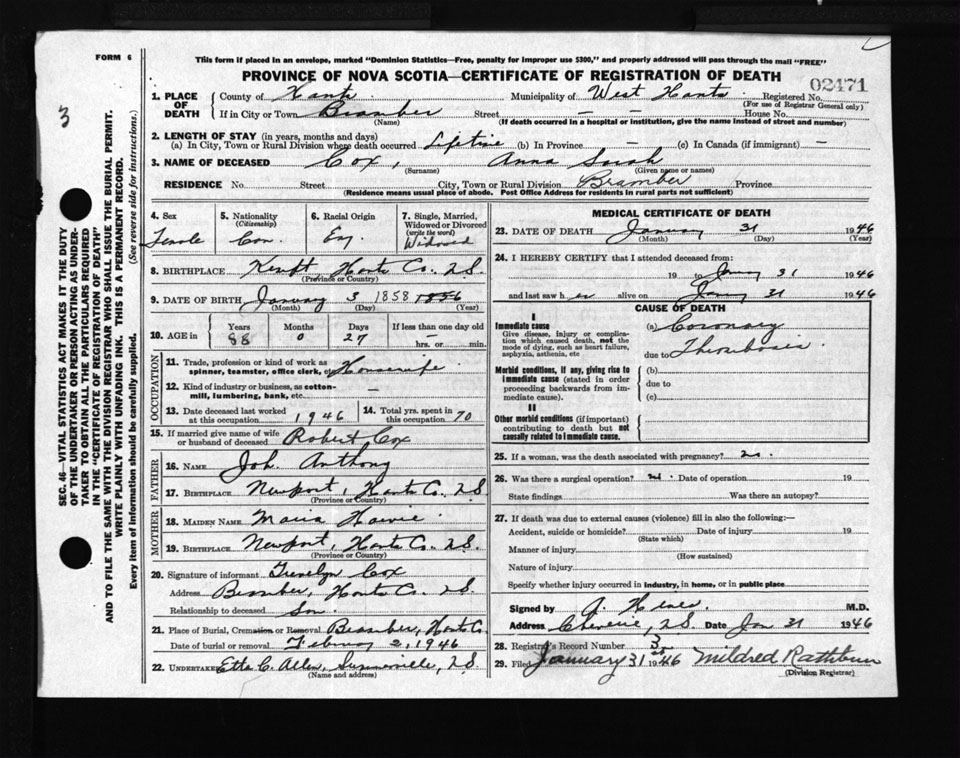 FORM 6
This form if placed in an envelope, marked "Dominion Statistics—Free, penalty for improper use $300," and properly addressed will pass through the mail "FREE"
PROVINCE OF NOVA SCOTIA—CERTIFICATE OF REGISTRATION OF DEATH
02471
3
SEC. 46—VITAL STATISTICS ACT MAKES IT THE DUTY
OF THE UNDERTAKER OR PERSON ACTING AS UNDER-
TAKER TO OBTAIN ALL THE PARTICULARS REQUIRED
IN THE "CERTIFICATE OF REGISTRATION OF DEATH"
AND TO FILE THE SAME WITH THE DIVISION REGISTRAR WHO SHALL ISSUE THE BURIAL PERMIT.
WRITE PLAINLY WITH UNFADING INK. THIS IS A PERMANENT RECORD.
Every item of information should be carefully supplied. (See reverse side for instructions.)
1. PLACE OF DEATH { County of Hants Municipality of West Hants Registered No.
(For use of Registrar General only)
If in City or Town Bramber Street — House No.
(Name) (If death occurred in a hospital or institution, give the name instead of street and number)
2. LENGTH OF STAY (in years, months and days)
(a) In City, Town or Rural Division where death occurred Lifetime (b) In Province — (c) In Canada (if immigrant) —
3. NAME OF DECEASED Cox, Anna Sarah
(Surname) (Given name or names)
RESIDENCE No. Street City, Town or Rural Division Bramber Province
(Residence means usual place of abode. Post Office Address for residents in rural parts not sufficient)
4. Sex Female
5. Nationality (Citizenship) Can.
6. Racial Origin Eng
7. Single, Married, Widowed or Divorced (write the word) Widowed
8. BIRTHPLACE Kempt, Hants Co. N.S.
(Province or Country)
9. DATE OF BIRTH January 3 1858 1856
(Month) (Day) (Year)
10. AGE in Years 88 Months 0 Days 27 If less than one day old hrs. or min.
OCCUPATION
11. Trade, profession or kind of work as spinner, teamster, office clerk, etc. Housewife
12. Kind of industry or business, as cotton-mill, lumbering, bank, etc. —
13. Date deceased last worked at this occupation 1946 14. Total yrs. spent in this occupation 70
15. If married give name of wife or husband of deceased Robert Cox
FATHER
16. NAME Joh. Anthony
17. BIRTHPLACE Newport, Hants Co. N.S.
(Province or Country)
MOTHER
18. MAIDEN NAME Maria Harvie
19. BIRTHPLACE Newport, Hants Co. N.S.
(Province or Country)
20. Signature of informant Cox
Address Bramber, Hants Co. N.S.
Relationship to deceased Son.
21. Place of Burial, Cremation or Removal Bramber, Hants Co
Date of burial or removal February 2, 1946
22. UNDERTAKER Etta C. Allen, Summerville, N.S.
(Name and address)
MEDICAL CERTIFICATE OF DEATH
23. DATE OF DEATH January 31 1946
(Month) (Day) (Year)
24. I HEREBY CERTIFY that I attended deceased from:
19 to Jany 31 1946
and last saw her alive on Jany 31 1946
CAUSE OF DEATH
I
Immediate cause
Give disease, injury or complication which caused death, not the mode of dying, such as heart failure, asphyxia, asthenia, etc
(a) Coronary
due to Thrombosis
Morbid conditions, if any, giving rise to immediate cause (stated in order proceeding backwards from immediate cause).
(b)
due to
(c)
II
Other morbid conditions (if important) contributing to death but not causally related to immediate cause.
25. If a woman, was the death associated with pregnancy? no.
26. Was there a surgical operation? no. Date of operation 19
State findings Was there an autopsy?
27. If death was due to external causes (violence) fill in also the following:—
Accident, suicide or homicide? Date of injury 19
(State which)
Manner of injury
(How sustained)
Nature of injury
Specify whether injury occurred in industry, in home, or in public place
Signed by A. M.D.
Address Cheverie, N.S. Date Jan 31 1946
28. Registrar's Record Number 3
29. Filed January 31st 1946 Mildred Rathbun
(Division Registrar)